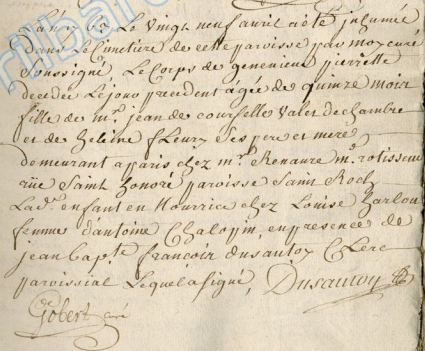 Lan 1763 Le Vingt neuf avril a eté inhumée
dans le Cimetiere de cette paroisse par moy curé
Soussigné, Le Corps de genevieve pierrette
decedée Lejour precedent agée de quinze mois
fille de mr. jean de courselles Valet de chambre
et de heleine fleury Ses pere et mere
demeurant a paris chez mr. Renaure md. rotisseur
rüe Saint honoré paroisse Saint Roch
Lad. enfant en Nourrice chez Louise harlou
femme dantoine Chalopin, en presence de
jean Bapt. françois dusautoy Clerc
paroissial Lequel a signé, Dusautoy
Gobert curé